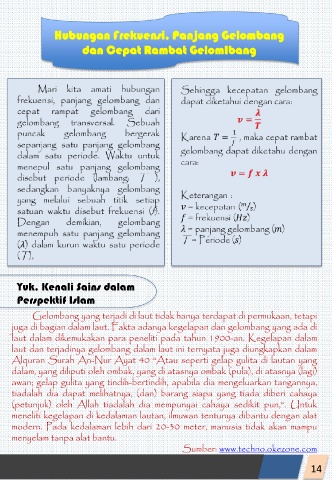 Hubungan Frekuensi, Panjang Gelombang
dan Cepat Rambat Gelomlbang
Mari kita amati hubungan
frekuensi, panjang gelombang dan
cepat rampat gelombang dari
gelombang transversal. Sebuah
puncak gelombang bergerak
sepanjang satu panjang gelombang
dalam satu periode. Waktu untuk
menepul satu panjang gelombang
disebut periode (lambang: T ),
sedangkan banyaknya gelombang
yang melalui sebuah titik setiap
satuan waktu disebut frekuensi (f).
Dengan demikian, gelombang
menempuh satu panjang gelombang
(λ) dalam kurun waktu satu periode
(T).
Sehingga kecepatan gelombang
dapat diketahui dengan cara:
v = λ/T
Karena T = 1/f , maka cepat rambat
gelombang dapat diketahu dengan
cara:
v = f x λ
Keterangan :
v = kecepatan (m/s)
f = frekuensi (Hz)
λ = panjang gelombang (m)
T = Periode (s)
Yuk. Kenali Sains dalam
Perspektif Islam
Gelombang yang terjadi di laut tidak hanya terdapat di permukaan, tetapi
juga di bagian dalam laut. Fakta adanya kegelapan dan gelombang yang ada di
laut dalam dikemukakan para peneliti pada tahun 1900-an. Kegelapan dalam
laut dan terjadinya gelombang dalam laut ini ternyata juga diungkapkan dalam
Alquran Surah An-Nur Ayat 40 "Atau seperti gelap gulita di lautan yang
dalam, yang diliputi oleh ombak, yang di atasnya ombak (pula), di atasnya (lagi)
awan; gelap gulita yang tindih-bertindih, apabila dia mengeluarkan tangannya,
tiadalah dia dapat melihatnya, (dan) barang siapa yang tiada diberi cahaya
(petunjuk) oleh Allah tiadalah dia mempunyai cahaya sedikit pun,". Untuk
meneliti kegelapan di kedalaman lautan, ilmuwan tentunya dibantu dengan alat
modern. Pada kedalaman lebih dari 20-30 meter, manusia tidak akan mampu
menyelam tanpa alat bantu.
Sumber: www.techno.okezone.com
14